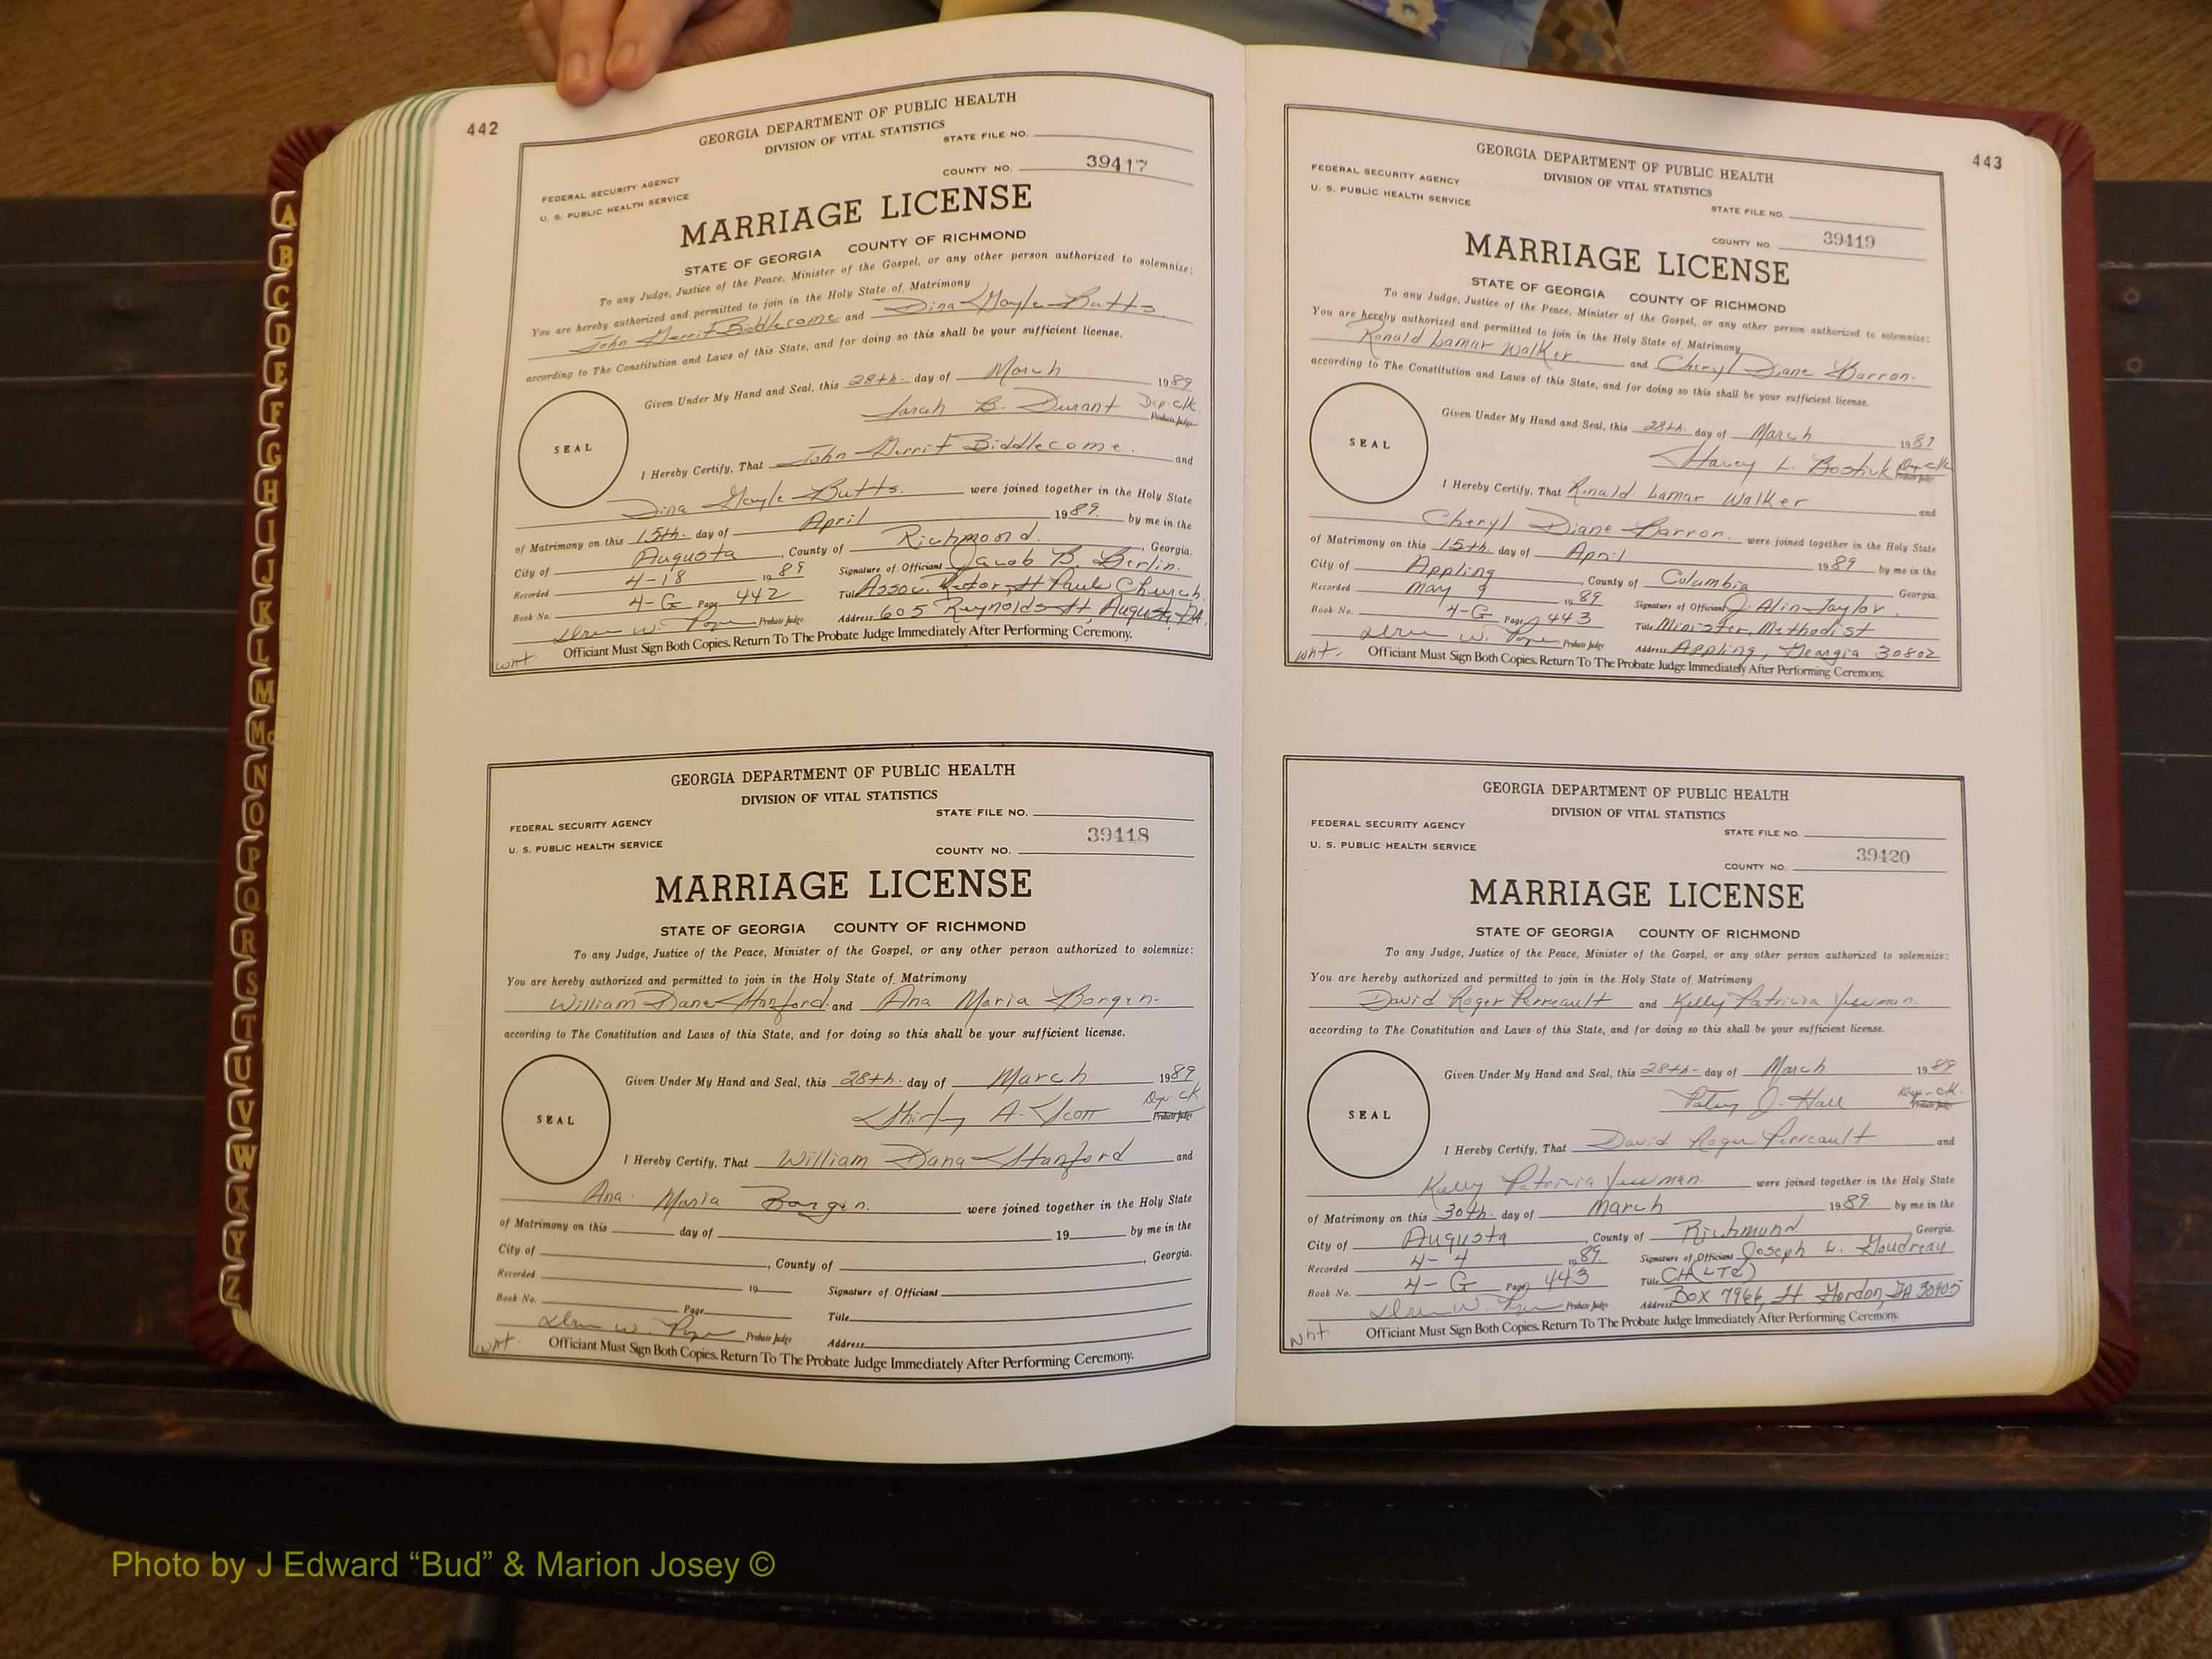 442
GEORGIA DEPARTMENT OF PUBLIC HEALTH
DIVISION OF VITAL STATISTICS
STATE FILE NO.
FEDERAL SECURITY AGENCY
U. S. PUBLIC HEALTH SERVICE
COUNTY NO. 39417
MARRIAGE LICENSE
STATE OF GEORGIA COUNTY OF RICHMOND
To any Judge, Justice of the Peace, Minister of the Gospel, or any other person authorized to solemnize:
You are hereby authorized and permitted to join in the Holy State of Matrimony
John Gerrit Biddlecome and Dina Gayle Butts.
according to The Constitution and Laws of this State, and for doing so this shall be your sufficient license.
Given Under My Hand and Seal, this 28th. day of March 1989
Sarah B. Durant Dep. clk.
Probate Judge
SEAL
I Hereby Certify, That John Gerrit Biddlecome. and
Dina Gayle Butts. were joined together in the Holy State
of Matrimony on this 15th. day of April 1989. by me in the
City of Augusta, County of Richmond., Georgia.
Recorded 4-18 1989 Signature of Officiant Jacob B. Berlin.
Book No. 4-G Page 442 Title Assoc. Rector, St Pauls Church.
Probate Judge Address 605 Reynolds St, Augusta, GA.
wht. Officiant Must Sign Both Copies. Return To The Probate Judge Immediately After Performing Ceremony.
GEORGIA DEPARTMENT OF PUBLIC HEALTH
DIVISION OF VITAL STATISTICS
STATE FILE NO.
FEDERAL SECURITY AGENCY
U. S. PUBLIC HEALTH SERVICE
COUNTY NO. 39418
MARRIAGE LICENSE
STATE OF GEORGIA COUNTY OF RICHMOND
To any Judge, Justice of the Peace, Minister of the Gospel, or any other person authorized to solemnize:
You are hereby authorized and permitted to join in the Holy State of Matrimony
William Dana Stanford and Ana Maria Borgen
according to The Constitution and Laws of this State, and for doing so this shall be your sufficient license.
Given Under My Hand and Seal, this 28th. day of March 1989
Shirley A. Scott Dep. ck
Probate Judge
SEAL
I Hereby Certify, That William Dana Stanford and
Ana Maria Borgen. were joined together in the Holy State
of Matrimony on this day of 19 by me in the
City of , County of , Georgia.
Recorded 19 Signature of Officiant
Book No. Page Title
Probate Judge Address
wht. Officiant Must Sign Both Copies. Return To The Probate Judge Immediately After Performing Ceremony.
443
GEORGIA DEPARTMENT OF PUBLIC HEALTH
DIVISION OF VITAL STATISTICS
FEDERAL SECURITY AGENCY
U. S. PUBLIC HEALTH SERVICE
STATE FILE NO.
COUNTY NO. 39419
MARRIAGE LICENSE
STATE OF GEORGIA COUNTY OF RICHMOND
To any Judge, Justice of the Peace, Minister of the Gospel, or any other person authorized to solemnize:
You are hereby authorized and permitted to join in the Holy State of Matrimony
Ronald Lamar Walker and Cheryl Diane Barron.
according to The Constitution and Laws of this State, and for doing so this shall be your sufficient license.
Given Under My Hand and Seal, this 28th. day of March 1989
L. Bostick Dep clk
Probate Judge
SEAL
I Hereby Certify, That Ronald Lamar Walker and
Cheryl Diane Barron. were joined together in the Holy State
of Matrimony on this 15th. day of April 1989 by me in the
City of Appling, County of Columbia Georgia.
Recorded May 9 1989 Signature of Officiant J. Alin Taylor.
Book No. 4-G Page 443 Title Minister, Methodist
Probate Judge Address Appling, Georgia 30802
wht. Officiant Must Sign Both Copies. Return To The Probate Judge Immediately After Performing Ceremony.
GEORGIA DEPARTMENT OF PUBLIC HEALTH
DIVISION OF VITAL STATISTICS
FEDERAL SECURITY AGENCY
STATE FILE NO.
U. S. PUBLIC HEALTH SERVICE
COUNTY NO. 39420
MARRIAGE LICENSE
STATE OF GEORGIA COUNTY OF RICHMOND
To any Judge, Justice of the Peace, Minister of the Gospel, or any other person authorized to solemnize:
You are hereby authorized and permitted to join in the Holy State of Matrimony
David Roger Perreault and Kelly Patricia Yewman.
according to The Constitution and Laws of this State, and for doing so this shall be your sufficient license.
Given Under My Hand and Seal, this 28th- day of March 1989
J. Hall Dep-ck.
Probate Judge
SEAL
I Hereby Certify, That David Roger Perreault and
Kelly Patricia Yewman. were joined together in the Holy State
of Matrimony on this 30th. day of March 1989. by me in the
City of Augusta, County of Richmond, Georgia.
Recorded 4-4 1989. Signature of Officiant Joseph L. Goudreau
Book No. 4-G Page 443 Title CH (LTC)
Probate Judge Address Box 7966, Ft. Gordon, GA 30905
wht Officiant Must Sign Both Copies. Return To The Probate Judge Immediately After Performing Ceremony.
A
B
C
D
E
F
G
H
I
J
K
L
M
Mc
N
O
P
Q
R
S
T
U
V
W
X
Y
Z
Photo by J Edward “Bud” & Marion Josey ©